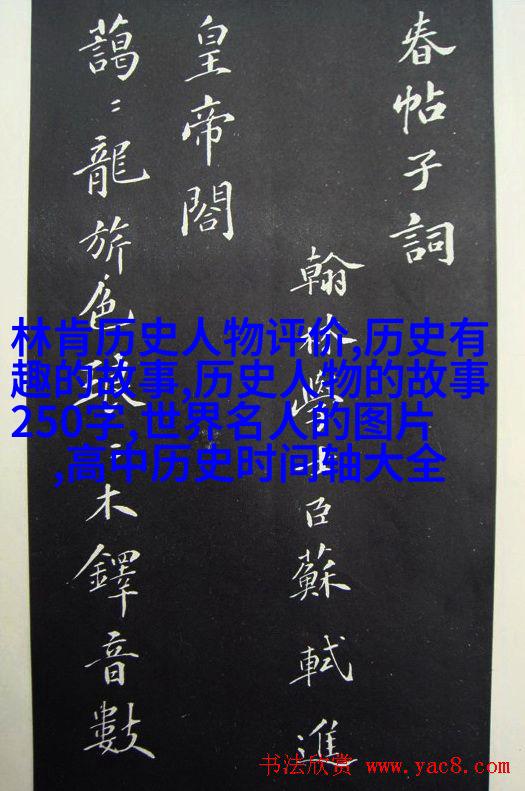 春帖子詞
翰林學士臣蘇軾進
皇帝閤
藹〻龍旂色琅〻木鐸音數
林肯历史人物评价,历史有
趣的故事,历史人物的故事
250字,世界名人的图片
,高中历史时间轴大全
书法欣赏 www.yac8.com